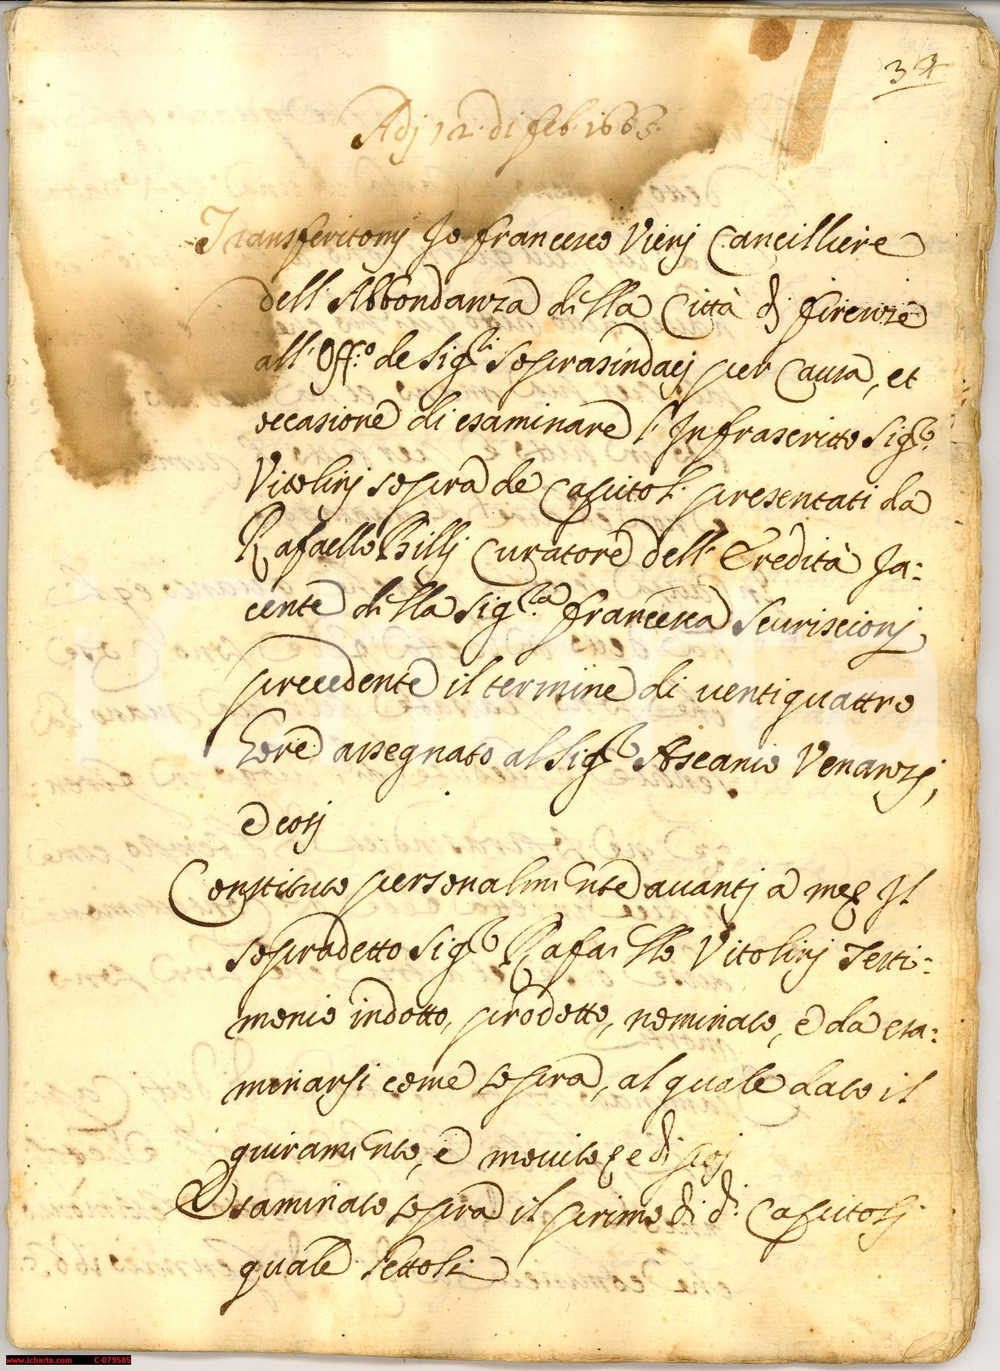 34
Adj 12. di feb. 1665.
Transferitomj Jo francesco Vierj Cancilliere
dell' Abbondanza della Città dj firenze
all' Off.o de Sig.ri Soprasindacj per Causa, et
occasione di esaminare l' Infrascritto Sig.re
Vitolinj sopra de Capitoli presentati da
Rafaello Billj Curatore dell' Eredità Ja:
cente della Sig.ra francesca Scuriscionj
precedente il termine di ventiquattro
hore assegnato al Sig.re Ascanio Venanzj,
e cosj
Constituto personalmente avantj a me Il
sopradetto Sig.re Rafaello Vitolinj Testi:
monio indotto, prodotto, nominato, e da esa:
minarsi come sopra, al quale dato il
giuramento, e monito
Esaminato sopra il primo di d.i Capitolj
quale lettoli
www.icharta.com C-079585